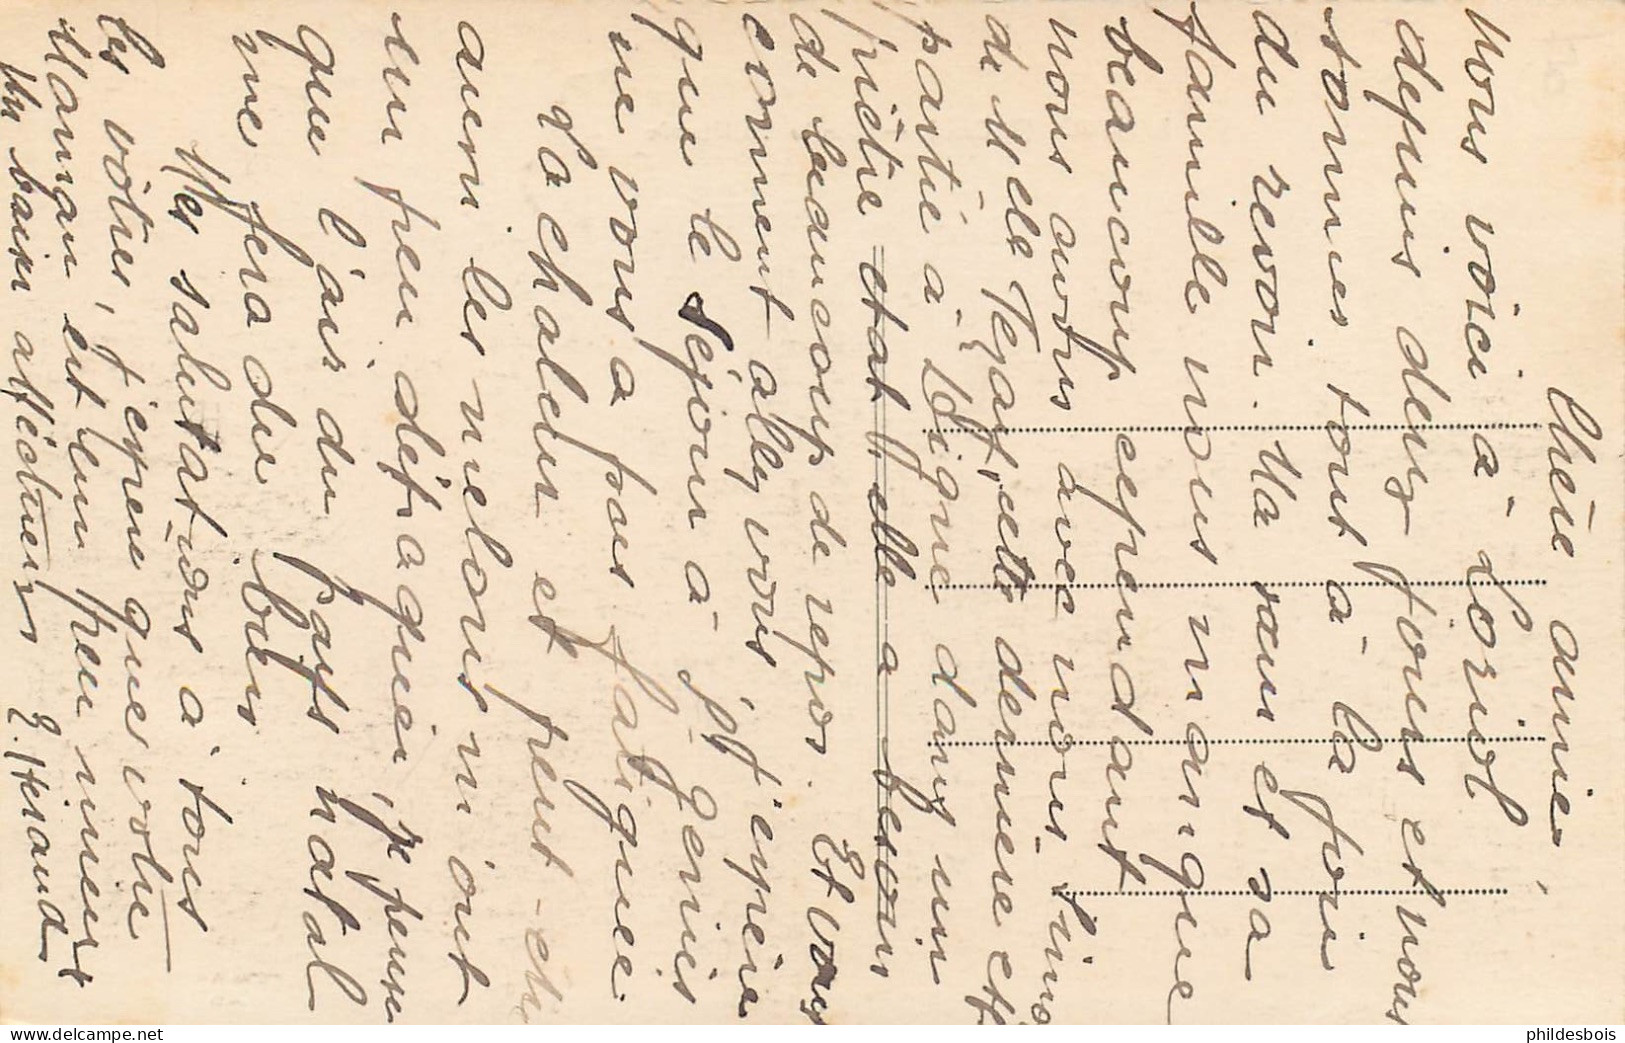 Chère amie,
Nous voici à Loriol
depuis deux jours et nous
sommes tout à la joie
du revoir. Ma sœur et sa
famille nous manque
beaucoup cependant
nous avons avec nous
de Melle cette dernière est
partie à Digne dans un
piètre état, elle a besoin
de beaucoup de repos. Et vous
comment allez vous, j'espère
que le séjour à St Genis
ne vous a pas fatiguée.
La chaleur et peut-être
aussi les melons m'ont
un peu détraquée, je pense
que l'air du pays natal
me fera du bien
Mes salutations à tous
les vôtres, j'espère que votre
Maman est un peu mieux
Un baiser affectueux
phildesbois